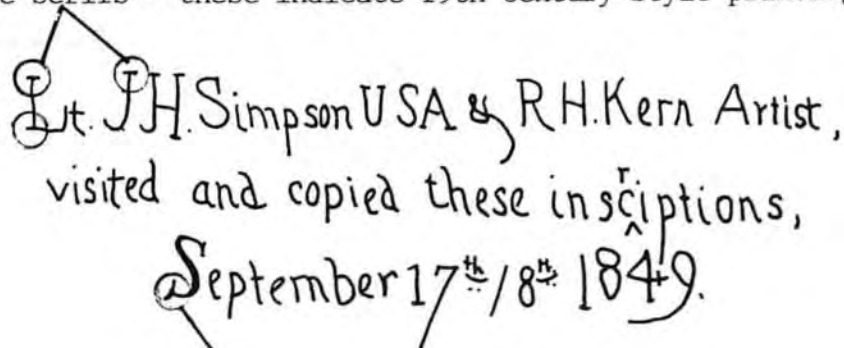 serifs - these indicate 19th century style
Lt. J H. Simpson USA & R H. Kern Artist,
visited and copied these inscriptions,
September 17th/8th 1849.